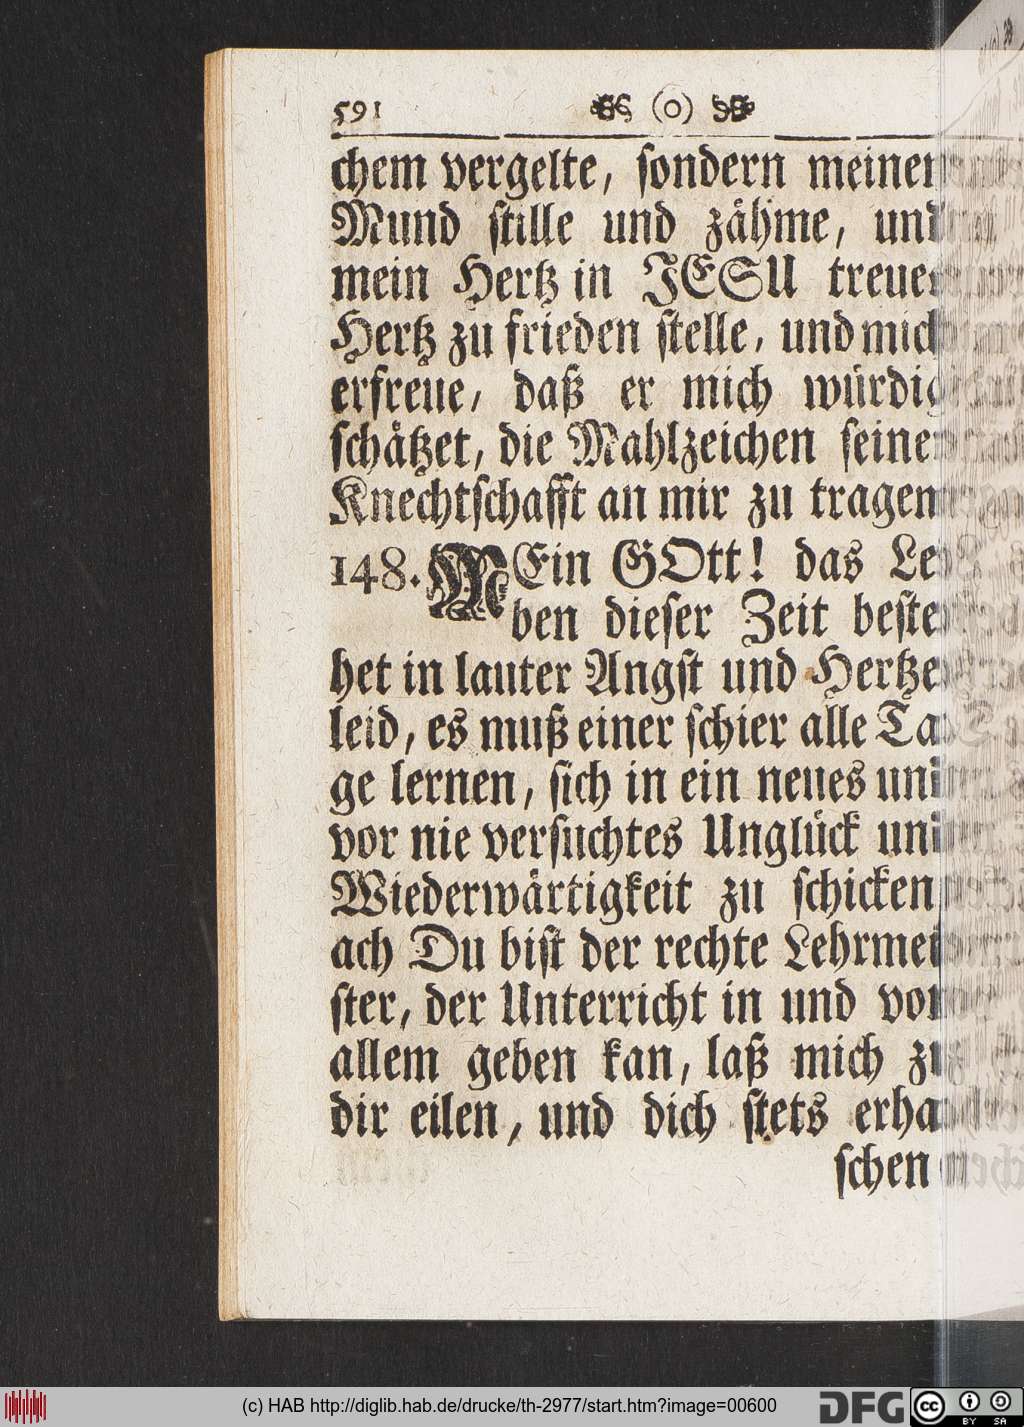 591 (o)
chem vergelte, sondern meinen
Mund stille und zähme, und
mein Hertz in JESU treues
Hertz zu frieden stelle, und mich
erfreue, daß er mich würdig
schätzet, die Mahlzeichen seiner
Knechtschafft an mir zu tragen
148. MEin GOtt! das Le
ben dieser Zeit beste
het in lauter Angst und Hertze
leid, es muß einer schier alle Ta
ge lernen, sich in ein neues und
vor nie versuchtes Unglück und
Wiederwärtigkeit zu schicken
ach Du bist der rechte Lehrmei
ster, der Unterricht in und vor
allem geben kan, laß mich zu
dir eilen, und dich stets erha
schen
(c) HAB http://diglib.hab.de/drucke/th-2977/start.htm?image=00600
DFG
cc BY SA